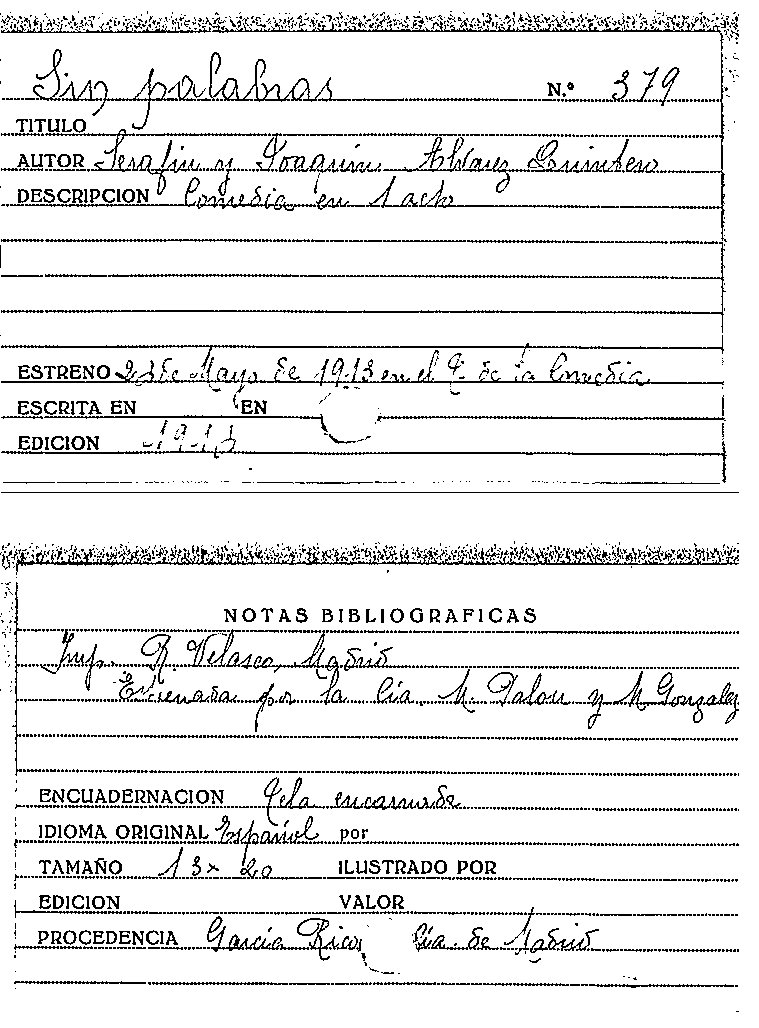 Sin palabras N.º 379
TITULO
AUTOR Serafin y Joaquin Alvarez Quintero
DESCRIPCION Comedia en 1 acto
ESTRENO 23 de Mayo de 1913 en el T. de la Comedia
ESCRITA EN EN
EDICION -1913
NOTAS BIBLIOGRAFICAS
Imp. R. Velasco, Madrid
Estrenada por la Cia. M. Palou y M Gonzalez
ENCUADERNACION Tela encarnada
IDIOMA ORIGINAL Español por
TAMAÑO 13 x 20 ILUSTRADO POR
EDICION VALOR
PROCEDENCIA Garcia Rico, Cia. de Madrid